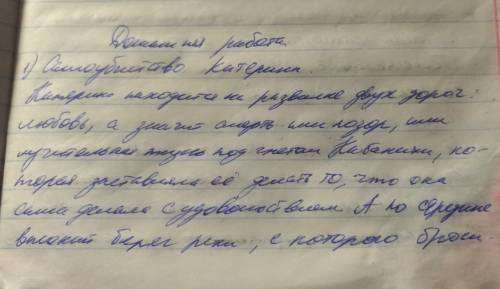 Домашняя работа.
1) Самоубийство Катерины.
Катерина находится на развалке двух дорог:
любовь, а значит смерть или позор, или
мучительная жизнь под гнетом Кабанихи, ко-
торая заставляла её делать то, что она
сама делала с удовольствием. А по середине
высокий берег реки, с которого броси-